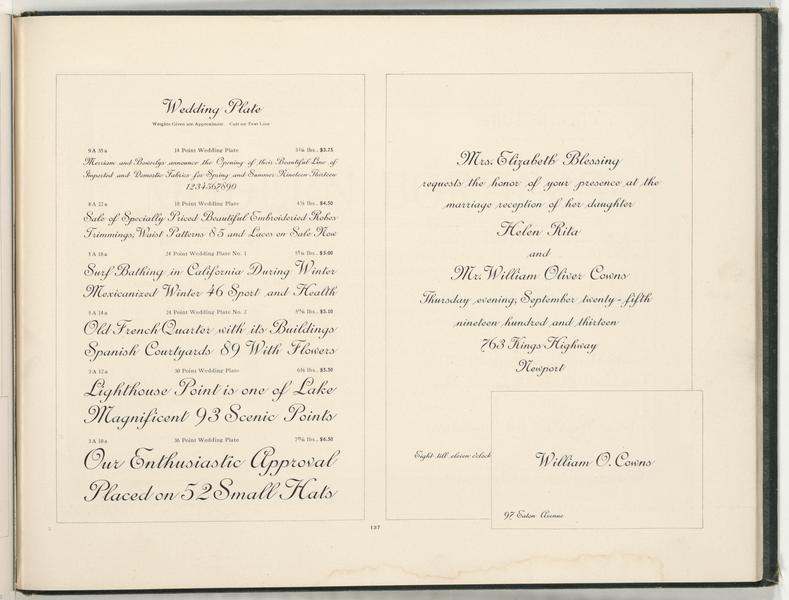 Wedding Plate
Weights Given are Approximate. Cast on Text Line
9 A 35 a 14 Point Wedding Plate $3.75
Merriam and Beverlys announce the Opening of their Beautiful Line of
Imported and Domestic Fabrics for Spring and Summer Nineteen Thirteen
1234567890
8 A 22 a 18 Point Wedding Plate $4.50
Sale of Specially Priced Beautiful Embroidered Robes
Trimmings, Waist Patterns 85 and Laces on Sale Now
5 A 18 a 24 Point Wedding Plate No. 1 $5.00
Surf Bathing in California During Winter
Mexicanized Winter 46 Sport and Health
24 Point Wedding Plate No. 2 $5.10
Old French Quarter with its Buildings
Spanish Courtyards 89 With Flowers
3 A 12 a 30 Point Wedding Plate $5.50
Lighthouse Point is one of Lake
Magnificent 93 Scenic Points
3 A 10 a 36 Point Wedding Plate $6.50
Our Enthusiastic Approval
Placed on 52 Small Hats
Mrs. Elizabeth Blessing
requests the honor of your presence at the
marriage reception of her daughter
Helen Rita
and
Mr. William Oliver Cowns
Thursday evening, September twenty-fifth
nineteen hundred and thirteen
763 Kings Highway
Newport
Eight till eleven o'clock
William O. Cowns
97 Eaton Avenue
137